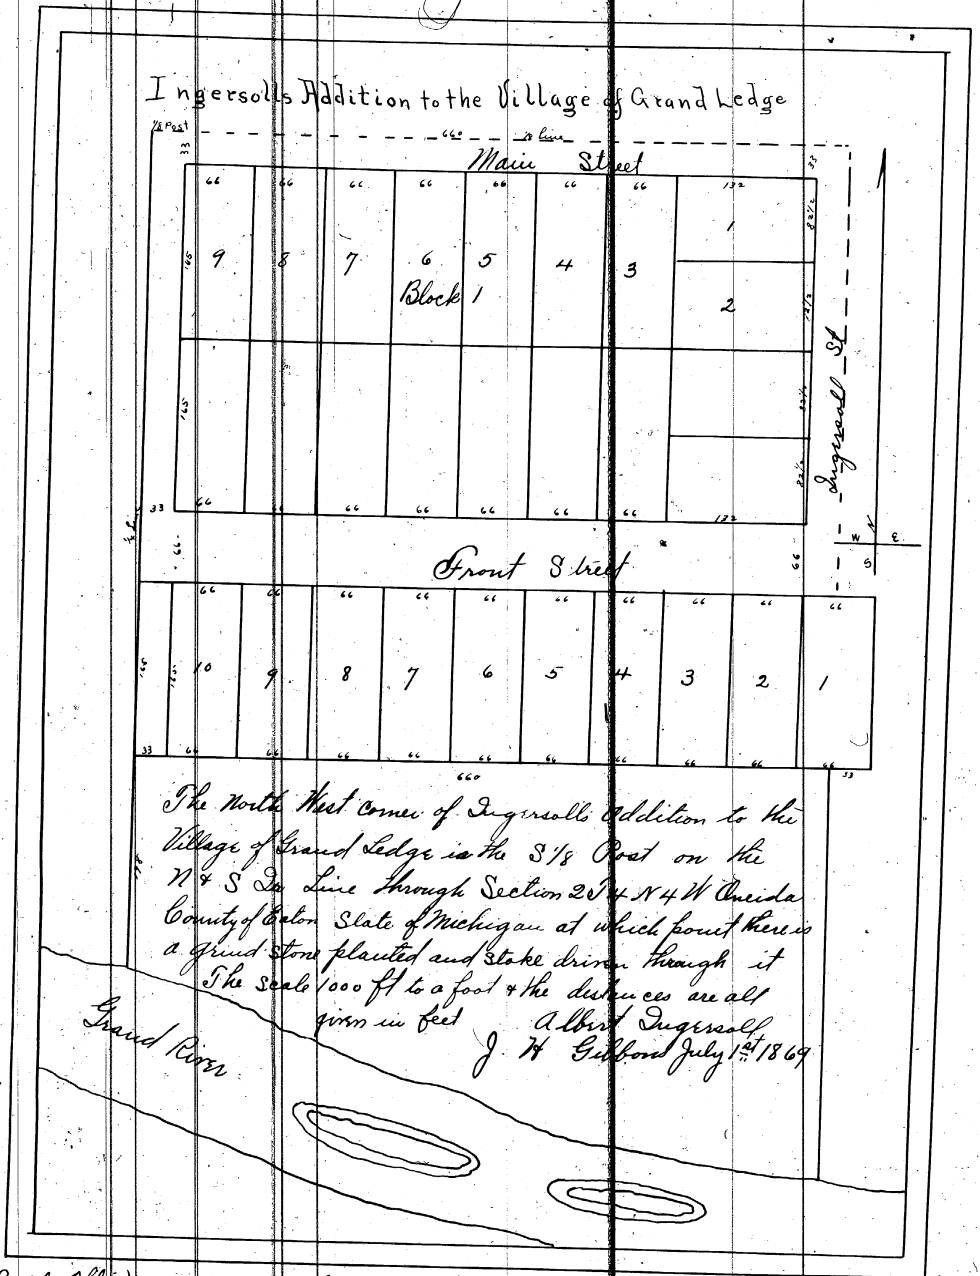 Ingersolls Addition to the Village of Grand Ledge
1/8 Post 660 1/8 line
33 Main Street 33
66 66 66 66 66 66 66 132
82 1/2
165 9 8 7 6 5 4 3 1
Block 1 2
Ingersoll St
165 82 1/2
82 1/2
33 66 66 66 66 66 66 66 132
N
W E
S
66 Front Street 66
66 66 66 66 66 66 66 66 66 66
165 165 10 9 8 7 6 5 4 3 2 1
33 66 66 66 66 66 66 66 66 66 66
660 33
The North West corner of Ingersolls Addition to the
Village of Grand Ledge is the S 1/8 Post on the
N & S Qr Line through Section 2 T 4 N 4 W Oneida
County of Eaton State of Michigan at which point there is
a grind stone planted and stake driven through it
The scale 1000 ft to a foot & the distances are all
given in feet Albert Ingersoll
J H Gibbons July 1st 1869
Grand River